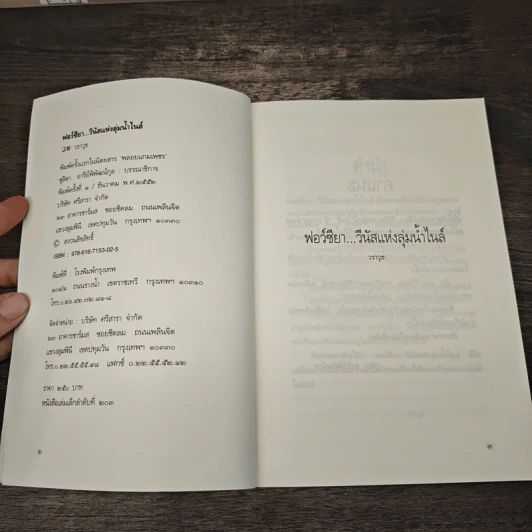 ฟอร์ซียา...วีนัสแห่งลุ่มน้ำไนล์
วราวุช
พิมพ์ครั้งแรกในนิตยสาร พลอยแกมเพชร
ชุลิตา อารีย์พิพัฒน์กุล : บรรณาธิการ
พิมพ์ครั้งที่ ๑ / ธันวาคม พ.ศ.๒๕๕๒
บริษัท ศรีสารา จำกัด
๒๓ อาคารชาร์มส ซอยชิดลม ถนนเพลินจิต
แขวงลุมพินี เขตปทุมวัน กรุงเทพฯ ๑๐๓๓๐
© สงวนลิขสิทธิ์
ISBN : 978-616-7153-02-5
พิมพ์ที่ : โรงพิมพ์กรุงเทพ
ถนนรางน้ำ เขตราชเทวี กรุงเทพฯ ๑๐๔๐๐
จัดจำหน่าย : บริษัท ศรีสารา จำกัด
๒๓ อาคารชาร์มส ซอยชิดลม ถนนเพลินจิต
แขวงลุมพินี เขตปทุมวัน กรุงเทพฯ ๑๐๓๓๐
โทร.๐.๒๒.๕๕.๕๕.๙๘ แฟกซ์ ๐.๒๒.๕๕.๕๒.๑๒
ราคา ๒๕๐ บาท
หนังสือเล่มเล็กลำดับที่ ๒๐๓
๒
ฟอร์ซียา...วีนัสแห่งลุ่มน้ำไนล์
วราวุช
๓